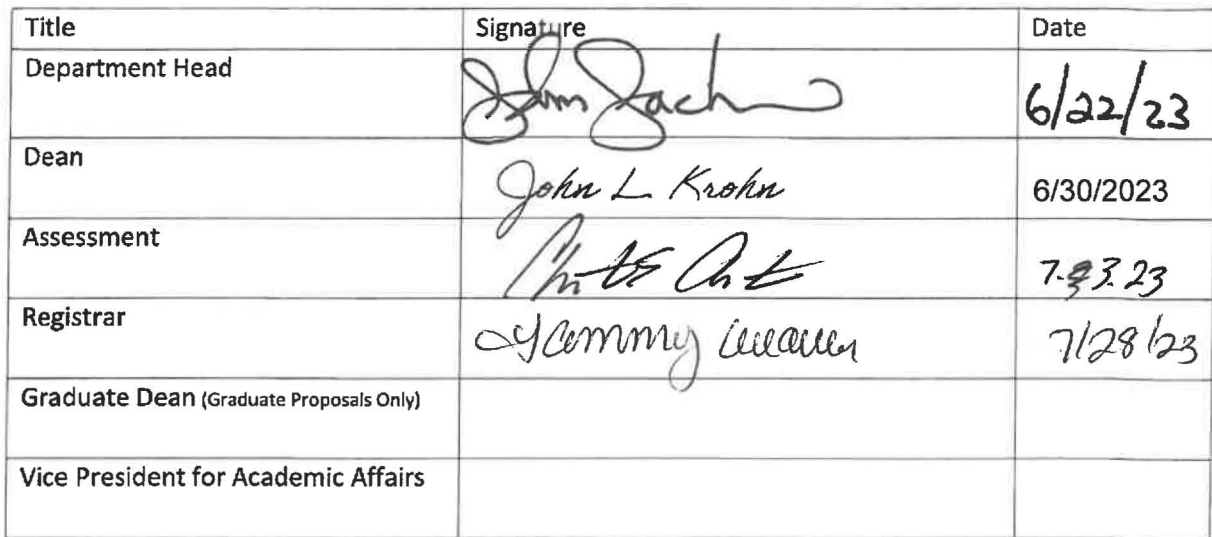 Title Signature Date
Department Head John 6/22/23
Dean John L Krohn 6/30/2023
Assessment 3.23
Registrar Tammy 7/28/23
Graduate Dean (Graduate Proposals Only)
Vice President for Academic Affairs